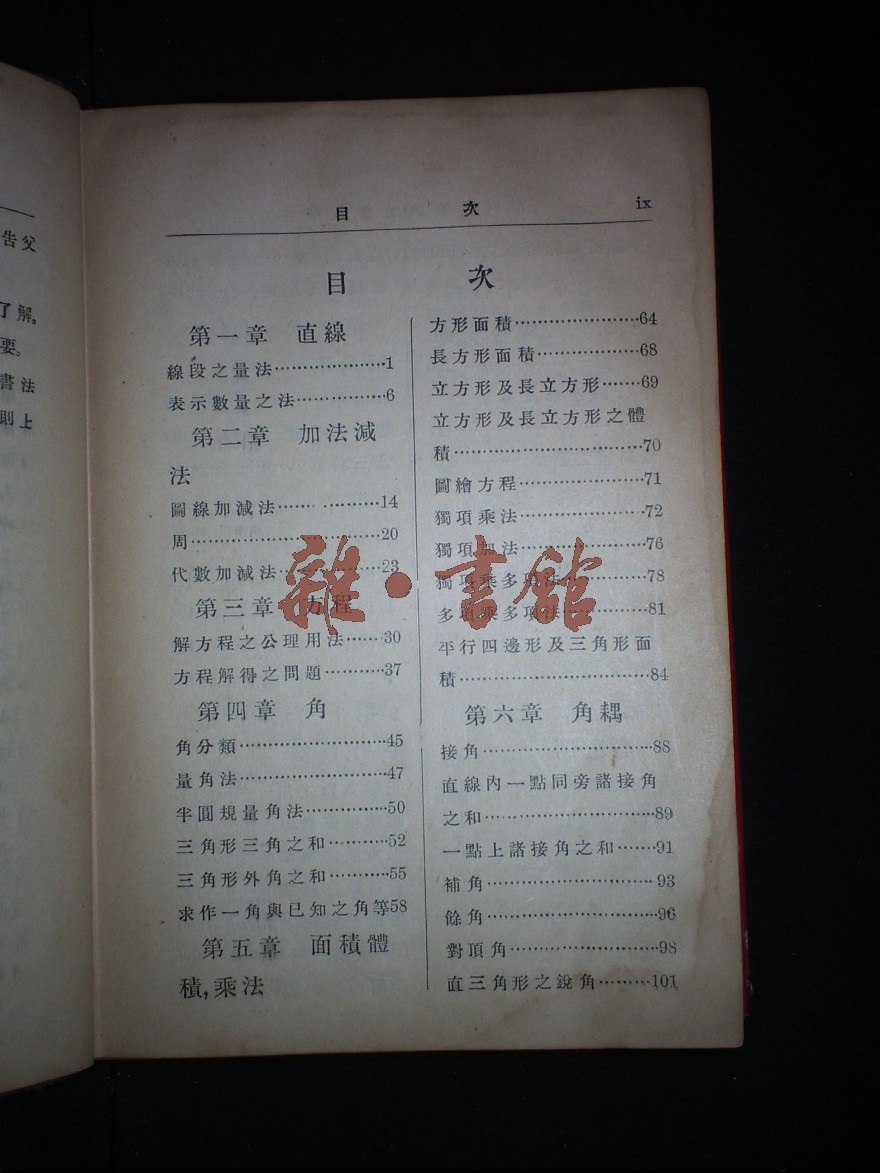 告父
了解。
要。
書法
則上
目 次 ix
目 次
第一章 直線
線段之量法···················1
表示數量之法···············6
第二章 加法減
法
圖線加減法·················14
周·······························20
代數加減法·················23
第三章 方程
解方程之公理用法······30
方程解得之問題·········37
第四章 角
角分類·······················45
量角法·······················47
半圓規量角法·············50
三角形三角之和·········52
三角形外角之和·········55
求作一角與已知之角等58
第五章 面積體
積,乘法
方形面積·····················64
長方形面積·················68
立方形及長立方形······69
立方形及長立方形之體
積·······························70
圖繪方程·····················71
獨項乘法·····················72
獨項加法·····················76
獨項乘多項法·············78
多項乘多項法·············81
平行四邊形及三角形面
積·······························84
第六章 角耦
接角···························88
直線內一點同旁諸接角
之和···························89
一點上諸接角之和·······91
補角···························93
餘角···························96
對頂角·······················98
直三角形之銳角·········101
雜·書館